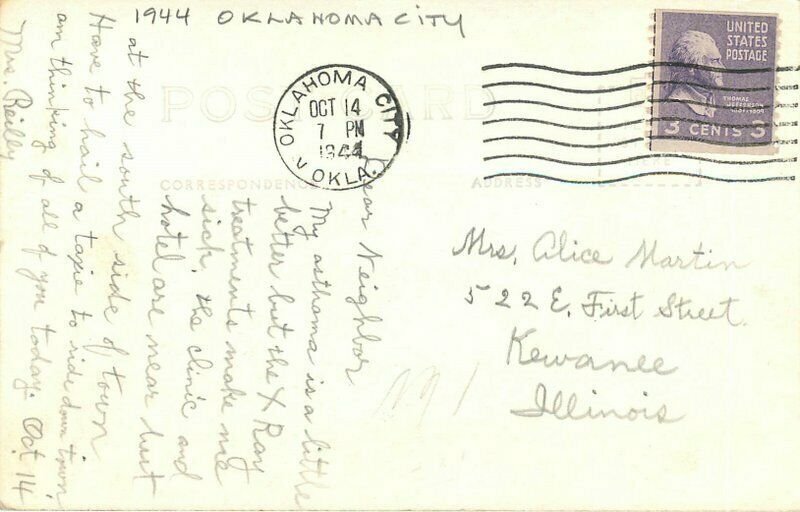 1944 OKLAHOMA CITY
POST CARD
OKLAHOMA CITY
OCT 14
7 PM
1944
OKLA.
UNITED
STATES
POSTAGE
THOMAS
JEFFERSON
3 CENTS 3
CORRESPONDENCE
ADDRESS
Dear Neighbor
My asthoma is a little
better but the X Ray
treatments make me
sick. the clinic and
hotel are near but
at the south side of town
Have to hail a taxie to ride down town
am thinking of all of you today. Oct 14
Mrs. Reilly
Mrs. Alice Martin
522 E. First Street.
Kewanee
Illinois